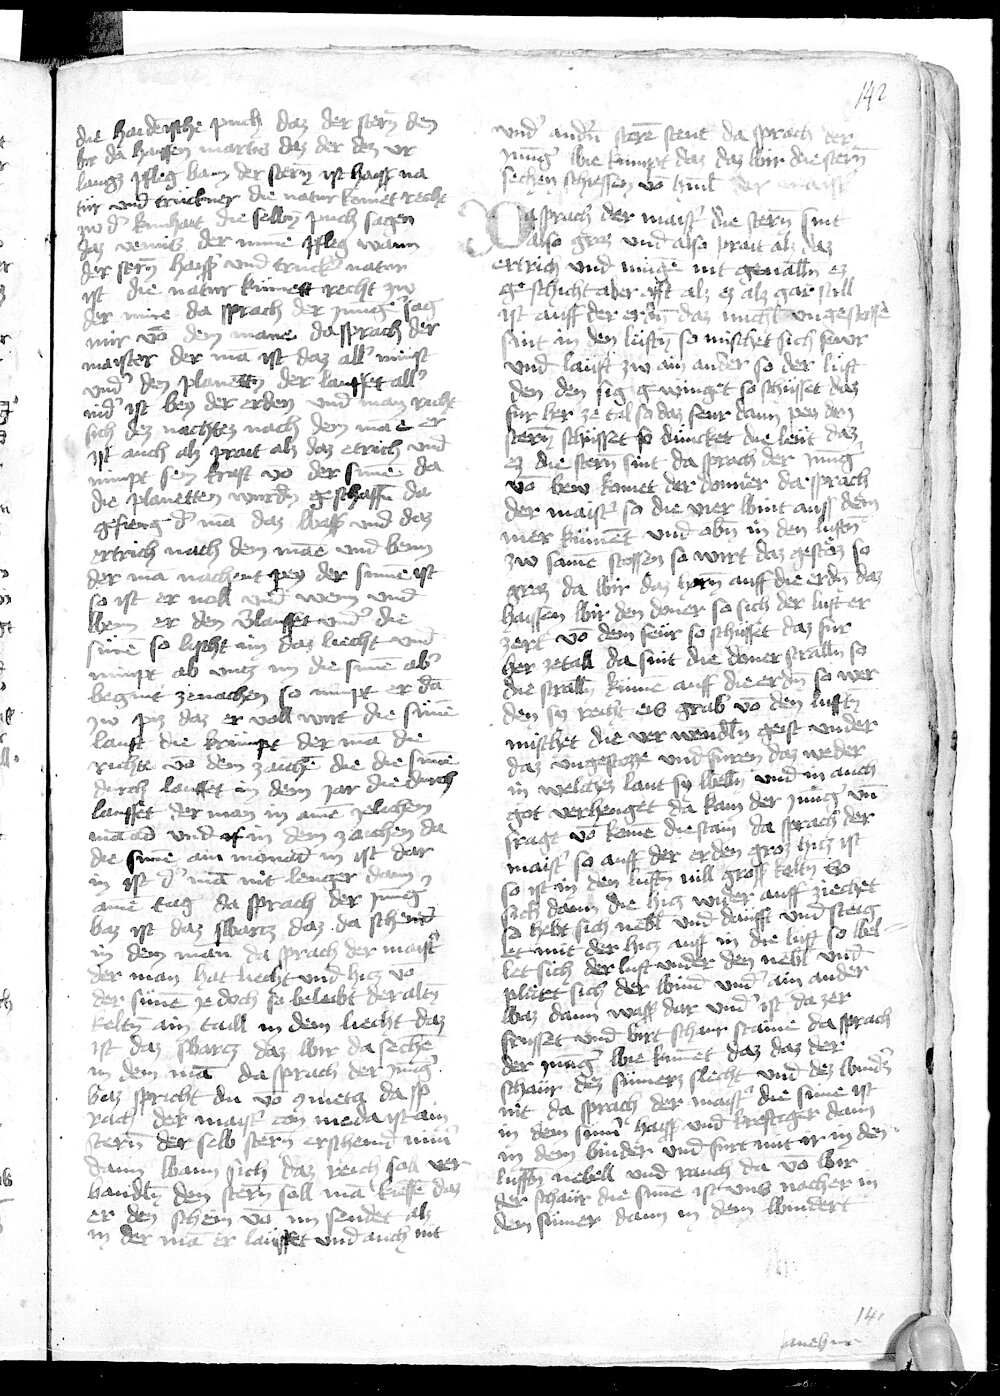 142
die haidenische puch daz der stern den
hie da haissen martis daz der dez ur
laugz pfleg wan der stern ist haiss na
tur und truckner die natur komet recht
zw der kunhait die selben puch sagen
daz venus der mine pfleg wann
der stern haiss und truck natur
ist die natur kumet recht zw
der mine da sprach der jung sag
mir vō dem mane da sprach der
maister der mā ist daz all minst
und den planetn der lauffet all
nid ist bey der erden und man richt
sich dez nachtez nach dem mā er
ist auch alz prait alz daz ertrich und
nimpt sein kraft vō der sune da
die planetten wurdn geschaffn da
gefieng d mā daz wasser und daz
ertrich nach dem māe und wenn
der mā nachent pey der sunne ist
so ist er voll und wenn und
wenn er den verlauffet und die
sunē so lischt im daz liecht und
nimpt ab untz im die sunē ab
begint zenachen so nimpt er dā
zw piz daz er voll wirt die sunē
lauft die krumpt der mā die
richte vō dem zaichē die die sunē
durch lauffet in dem jar die durch
lauffet der man in ainē jelichem
manad und ist in dem zaichen da
die sunē ain monad in ist dar
in ist d mā nit lenger dann
ainē tag da sprach der jung
waz ist daz swarcz daz da scheint
in dem mān da sprach der maist
der man hat liecht und hicz vō
der sunē jedoch so beleibt der altn
keltn ain taill in dem liecht daz
ist daz swarcz daz wir da sechē
in dem mā da sprach der jung
waz spricht du vō cometa da sp
rach der maist cometa ist ain
stern der selb stern erscheint nur
dann wann sich daz reich sol ver
wandln den stern soll mā kiesse daz
er den schein vō im sendet als
in der mā er lauffet und auch nit
und andn sterē stent da sprach der
jung wie kumpt daz daz wir die stern
sechen schiessen vō himl der maist
Da sprach der maist die stern sint
also groz und also prait alz daz
ertrich und mugē nit gevalln ez
geschicht aber offt alz ez alz gar still
ist auff der erdn daz michl ungestosse
sint in den luftn so mischet sich feur
und lauft zw ain ander so der luft
den den sig gwinget so schusset daz
fur her ze tal so daz feur dann pey den
stern schusset so duncket die leut daz
ez die stern sint da sprach der jung
vō wew komet der donner da sprach
der maist so die vier wint auss dem
mer kumēt und obn in den luftn
zw samē stossen so wirt daz gestosz so
groz da wir daz horn auff die erdn daz
haissen wir den doner so sich der luft er
zert vō dem feur so schusset daz fur
her zetall da sint die doner stralln so
die stralln kumē auff die erdn so wer
den sy recht eis grab vō den luftn
mischet die ver wendln geist under
daz ungestosse und furen daz weder
in welches lant sy welln und in auch
got verhenget da kam der jung und
fragt vō kome die stain da sprach der
maist so auff der erden groz hicz ist
so ist in den luftn vill gross keltn so
sich dann die hicz wider auff ziechet
so hebt sich nebl und daufft und steig
et mit der hicz auff in die luft so wel
let sich der luft under den nebl und
pluet sich der wind und ain ander
waz dann wass dar und ist da zer
frusset und wirt schaur staine da sprach
der jung wie kumet daz daz der
schaur dez sumers slecht und dez wintz
nit da sprach der maist die sune ist
in dem sumer haiss und krefftiger dann
in dem winder und furt mit ir in den
lufften nebell und rauch da vō wir
der schaur die sune ist uns nacher in
dem sumer dann in dem windert
141